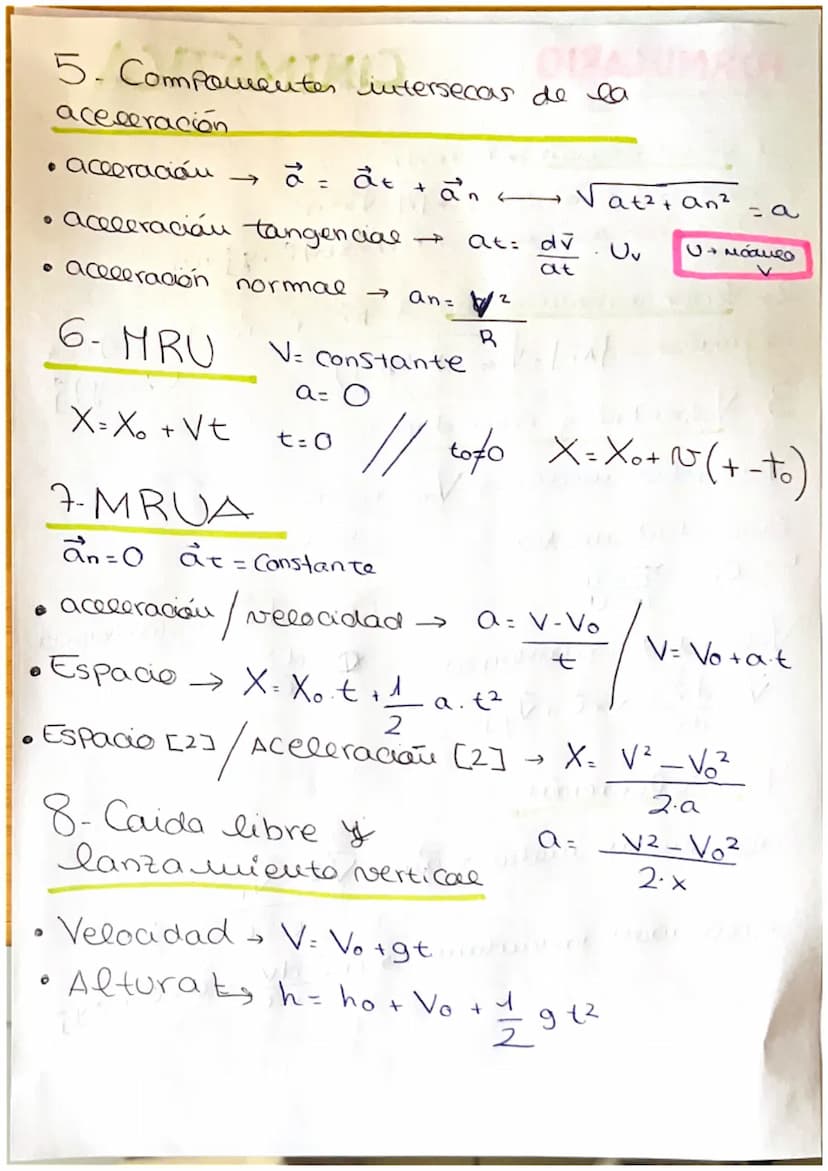 5- Componentes intersecas de la
aceleración
• aceeración → a⃗ = a⃗t + a⃗n ⟷ √at²+an² = a
• aceleración tangencial → at = dv̄/at · Uv   U → Módulo v
• aceleración normal → an = V²/R
6- MRU   V = constante
a = 0
X = X₀ + Vt   t = 0 // t₀≠0   X = X₀ + v(t - t₀)
7- MRUA
a⃗n = 0   a⃗t = Constante
• aceleración / velocidad → a = V-V₀/t / V = V₀ + a·t
• Espacio → X = X₀·t + 1/2 a·t²
• Espacio [2] / Aceleración [2] → X = V² - V₀²/2·a
a = V² - V₀²/2·x
8- Caida libre y
lanzamiento vertical
• Velocidad → V = V₀ + gt
• Altura t↳ h = h₀ + V₀ + 1/2 g t²